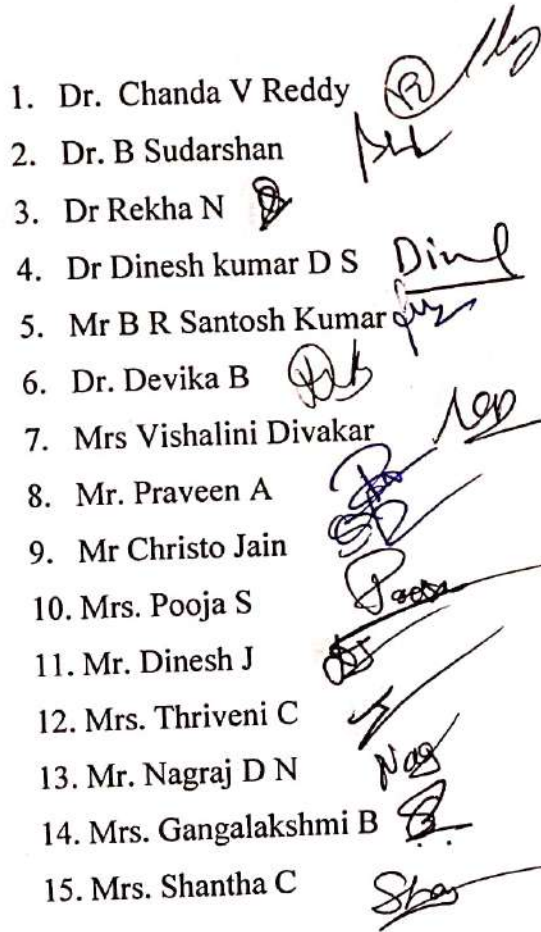 1. Dr. Chanda V Reddy
2. Dr. B Sudarshan
3. Dr Rekha N
4. Dr Dinesh kumar D S
5. Mr B R Santosh Kumar
6. Dr. Devika B
7. Mrs Vishalini Divakar
8. Mr. Praveen A
9. Mr Christo Jain
10. Mrs. Pooja S
11. Mr. Dinesh J
12. Mrs. Thriveni C
13. Mr. Nagraj D N Nag
14. Mrs. Gangalakshmi B
15. Mrs. Shantha C